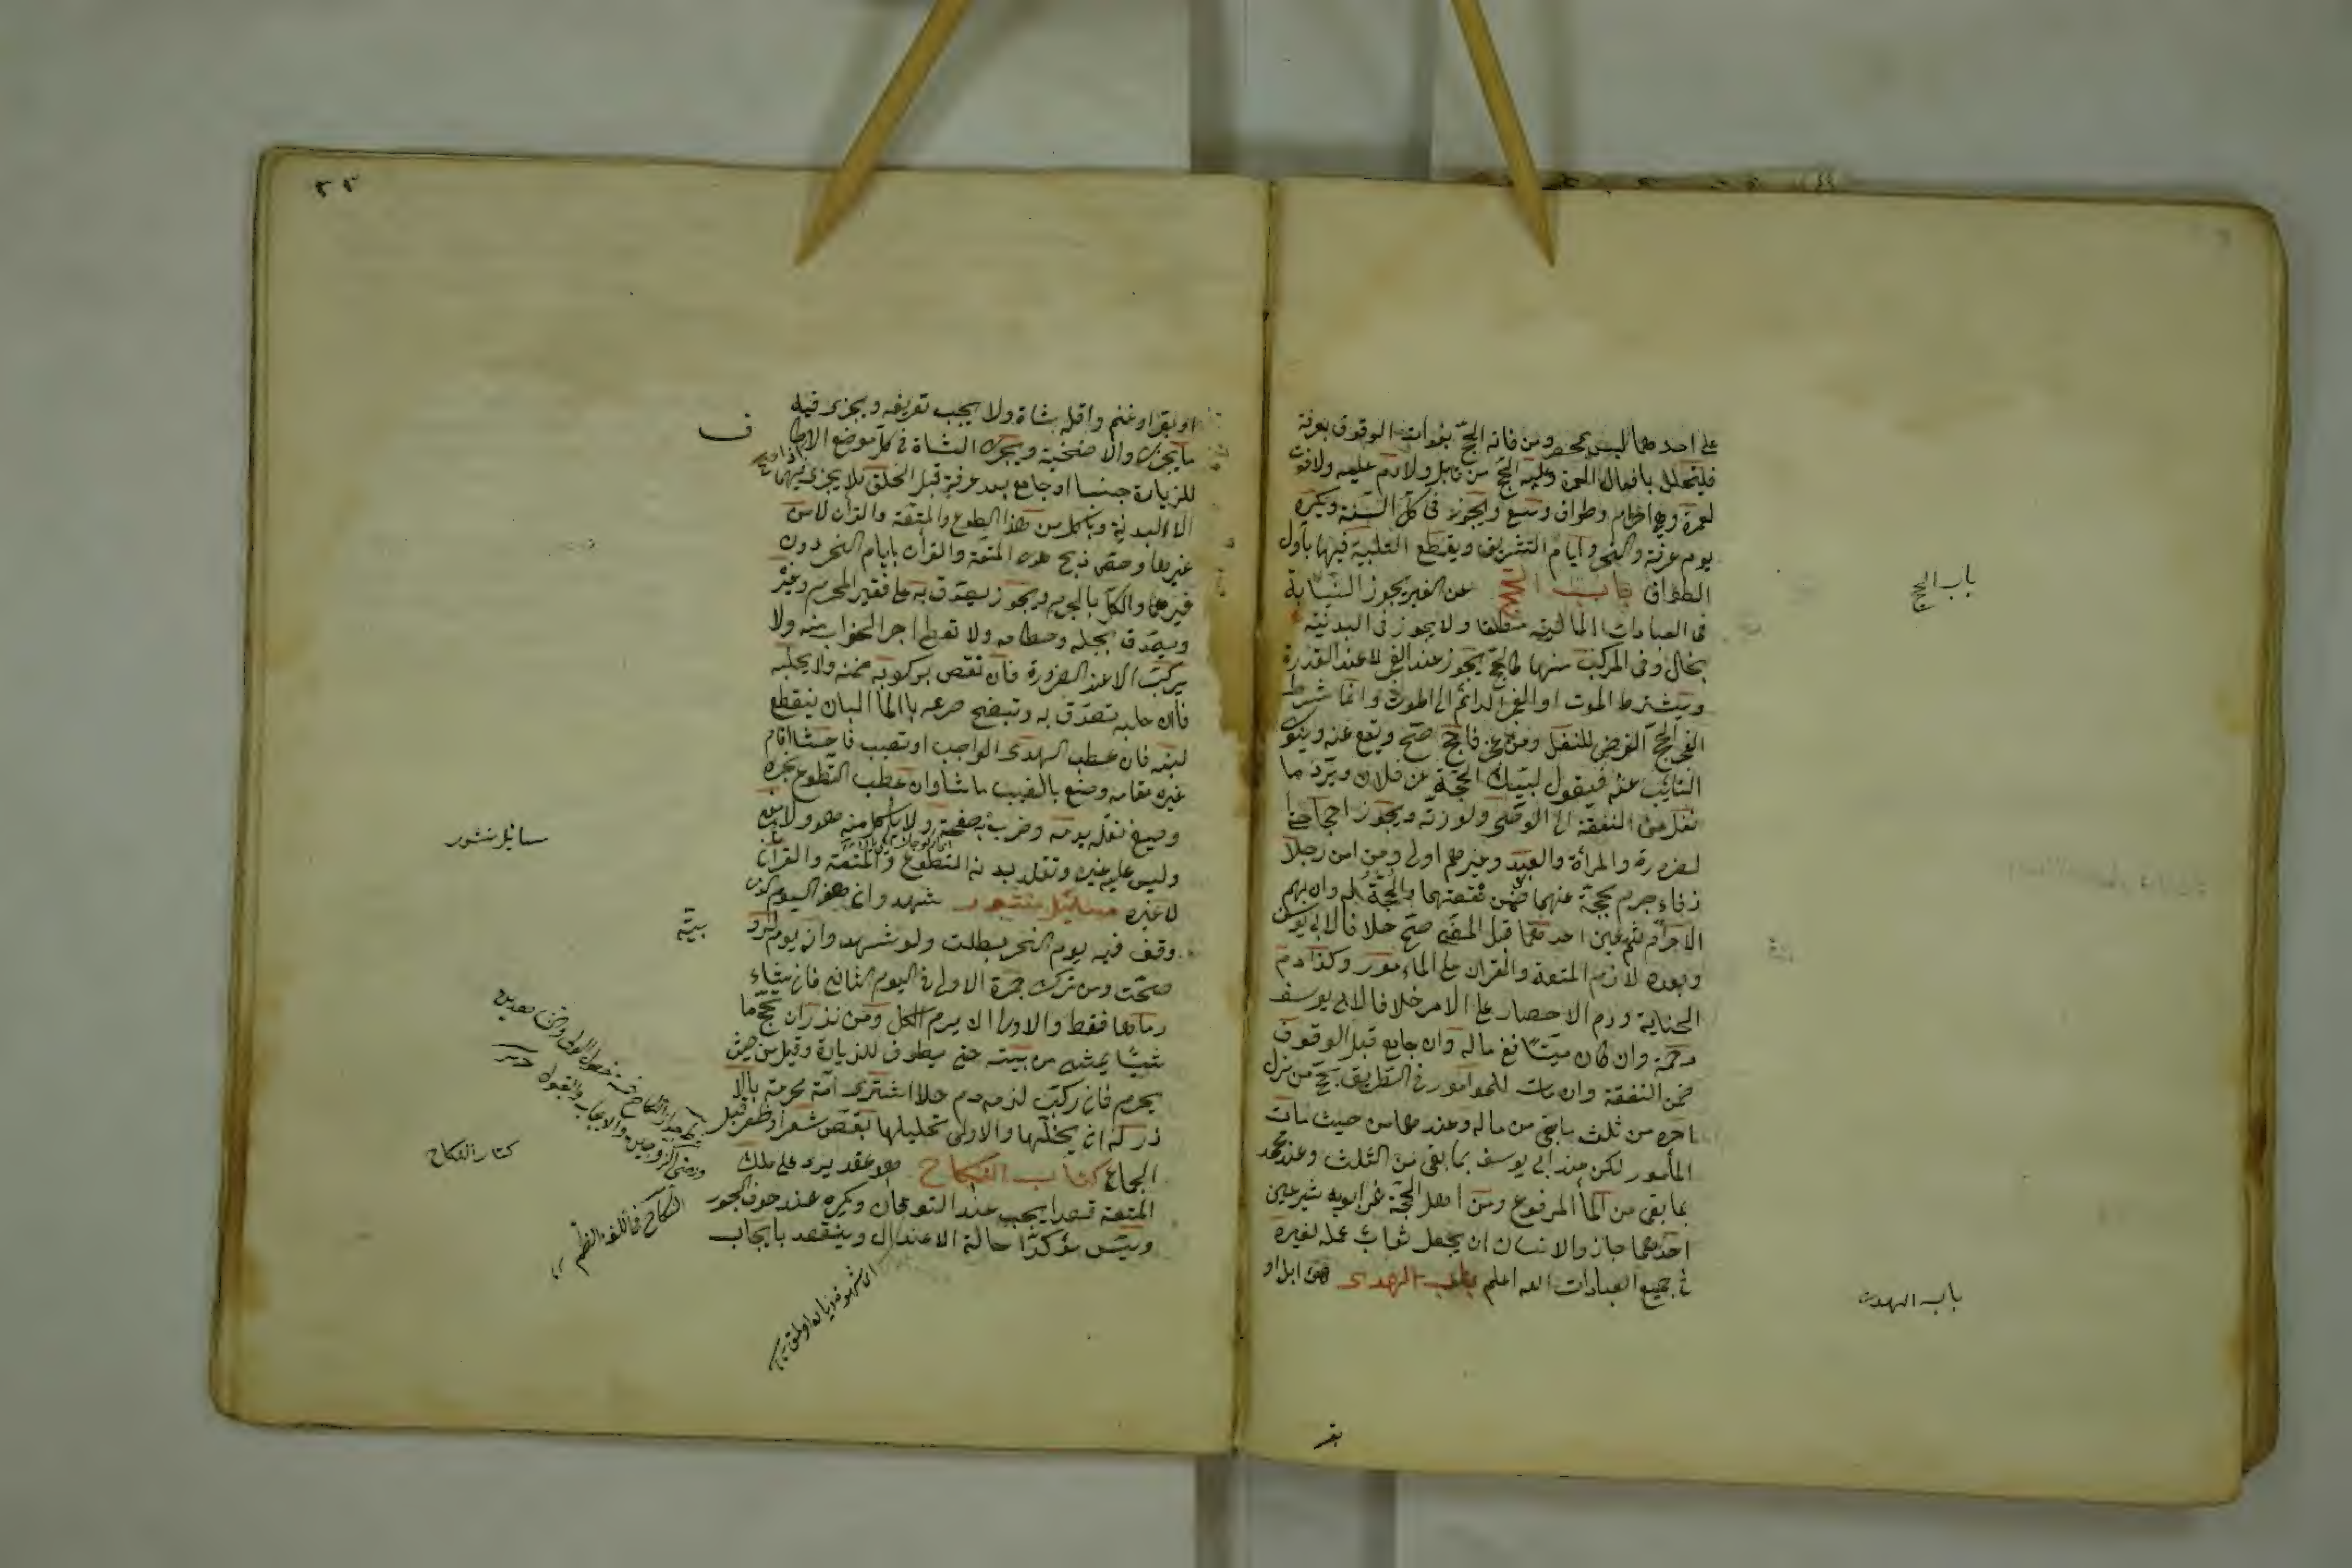 على احدهما ليس بمحصر ومن فاته الحجّ بفوات الوقوف بعرفة
فليتحلل بافعال العمرة وعليه الحجّ من قابل ولا دم عليه ولا فوت
لعمرة وهي احرام وطواف وسعى ويجوز فى كلّ السّنة ويكره
يوم عرفة والنحر وايام التشريق ويقطع التلبية فيها باول
الطواف باب الحج عن الغير يجوز النيابة
فى العبادات المالية مطلقا ولا يجوز فى البدنية
بحال وفى المركب منهما كالحجّ يجوز عند العجز لا عند القدرة
ويشترط الموت او العجز الدائم الى الموت وانما شرط
العجز للحجّ الفرض لا للنفل ومن عجز فاحج صحّ ويقع عنه وينوى
النائب عنه فيقول لبّيك بحجّة عن فلان ويردّ ما
فضل من النفقة الى الوصى او لورثته ويجوز احجاج
الصرورة والمرأة والعبد وغيرهم اولى ومن امن رجلا
فاحرم بحجّة عنهما ضمن نفقتهما والحجّة له وان ابهم
الاحرام ثم عين احدهما قبل المضى صحّ خلافا لابى يوسف
وبعده لا ودم المتعة والقران على المامور وكذا دم
الجناية ودم الاحصار على الامر خلافا لابى يوسف
رحمة وان كان ميتا ففى ماله وان جامع قبل الوقوف
ضمن النفقة وان مات المامور فى الطريق يحجّ من منزل
آمره من ثلث ما بقى من ماله وعندهما من حيث مات
المأمور لكن عند ابى يوسف بما بقى من الثلث وعند محمد
بما بقى من المال المرفوع ومن اهل بحجّة عن ابويه ثم عين
احدهما جاز وللانسان ان يجعل ثواب عمله لغيره
فى جميع العبادات الله اعلم باب الهدى هى ابل او
باب الحج
باب الهدى
بقر
او بقر او غنم واقله شاة ولا يجب تعريفه ويجزى فيه
ما يجزى والاضحية ويجزى الشاة فى كل موضع الا اذا طاف
للزيارة جنبا او جامع بعد عرفة قبل الحلق فلا يجزى فيهما
الا البدنة ويأكل من هدى التطوع والمتعة والقران لا من
غيرها وخص ذبح هدى المتعة والقران بايام النحر دون
غيرهما والكل بالحرم ويجوز يتصدق به على فقير الحرم وغيره
ويتصدق بجله وخطامه ولا تعطى اجر الجزار منه ولا
يركب الا عند الضرورة فان نقص بركوبه ضمنه ولا يحلبه
فان حلبه تصدّق به وتنضح ضرعه بالماء البارد ينقطع
لبنه فان عطب الهدى الواجب او تعيب فاحشا اقام
غيره مقامه وصنع بالمعيب ما شاء وان عطب التطوع نحره
وصبغ نعله بدمه وضرب به صفحته ولا ياكل منه هو ولا غنى
وليس عليه غيره وتقلد بدنة التطوع والمتعة والقران
لا غيره مسائل منثورة شهدوا ان هذا اليوم الذى
وقف فيه يوم النحر بطلت ولو شهدوا انه يوم التروية
صحّت ومن ترك جمرة الاولى فى اليوم الثانى فان شاء
رماها فقط والاولى ان يرمى الكل ومن نذر ان يحجّ ما
شيا يمشى من بيته حتى يطوف للزيارة وقيل من حيث
يحرم فان ركب لزمه دم حلال اشترى امة محرمة بالا
ذن له ان يحللها والاولى تحليلها بقص شعر او ظفر قبل
الجماع كتاب النكاح هو عقد يرد على ملك
المتعة قصدا يجب عند التوقان ويكره عند خوف الجور
ويسن مؤكدا حالة الاعتدال وينعقد بايجاب
ف
مسائل منثور
كتاب النكاح